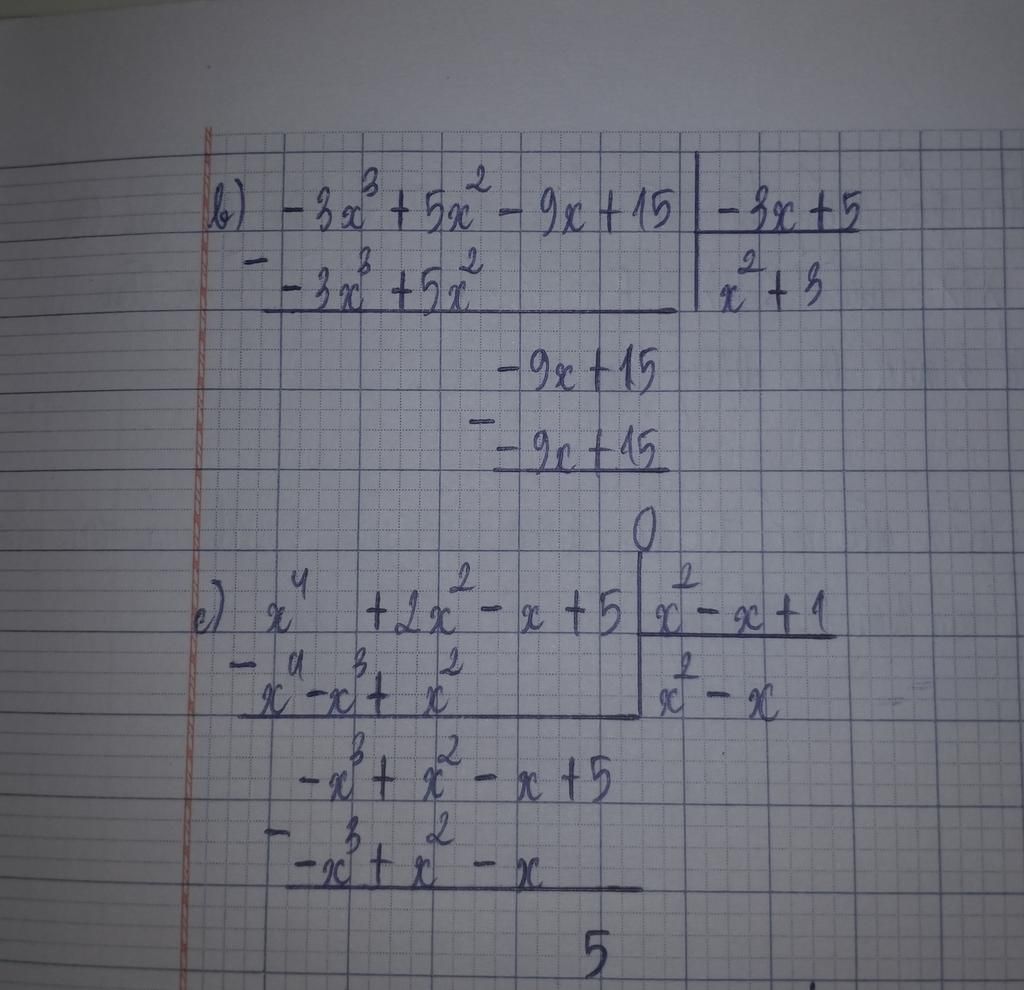 b) -3x³ + 5x² - 9x + 15 | -3x + 5
- -3x³ + 5x² | x² + 3
-9x + 15
- -9x + 15
0
c) x⁴ + 2x² - x + 5 | x² - x + 1
- x⁴ - x³ + x² | x² - x
-x³ + x² - x + 5
- -x³ + x² - x
5